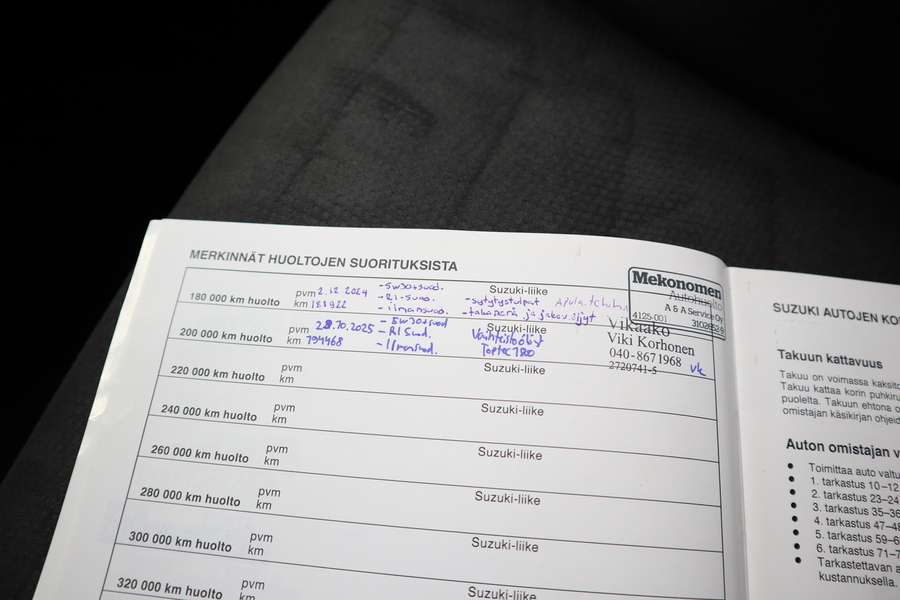 MERKINNÄT HUOLTOJEN SUORITUKSISTA
180 000 km huolto
pvm 2.12.2024
km 181922
- 5w30+suod.
- RI-suod.
- ilmansuod.
Suzuki-liike
- sytytystulpat
- takaperä ja jakov. öljyt
Mekonomen
Autohuolto
A & A Service Oy
4125-001
200 000 km huolto
pvm 28.10.2025
km 194468
- 5w30+suod
- RI Suod.
- Ilmansuod.
Suzuki-liike
Vaihteistoöljyt
Toptec 1800
Vikaako
Viki Korhonen
040-8671968
2720741-5
vk
220 000 km huolto
pvm
km
Suzuki-liike
240 000 km huolto
pvm
km
Suzuki-liike
260 000 km huolto
pvm
km
Suzuki-liike
280 000 km huolto
pvm
km
Suzuki-liike
300 000 km huolto
pvm
km
Suzuki-liike
320 000 km huolto
pvm
km
Suzuki-liike
SUZUKI AUTOJEN
Takuun kattavuus
Takuu on voimassa
Takuu kattaa korin
puolelta. Takuun ehtona
omistajan käsikirjan
Auton omistajan
• Toimittaa auto
• 1. tarkastus 10–12
• 2. tarkastus 23–24
• 3. tarkastus 35–36
• 4. tarkastus 47–48
• 5. tarkastus 59–6
• 6. tarkastus 71–7
• Tarkastettavan
kustannuksella.